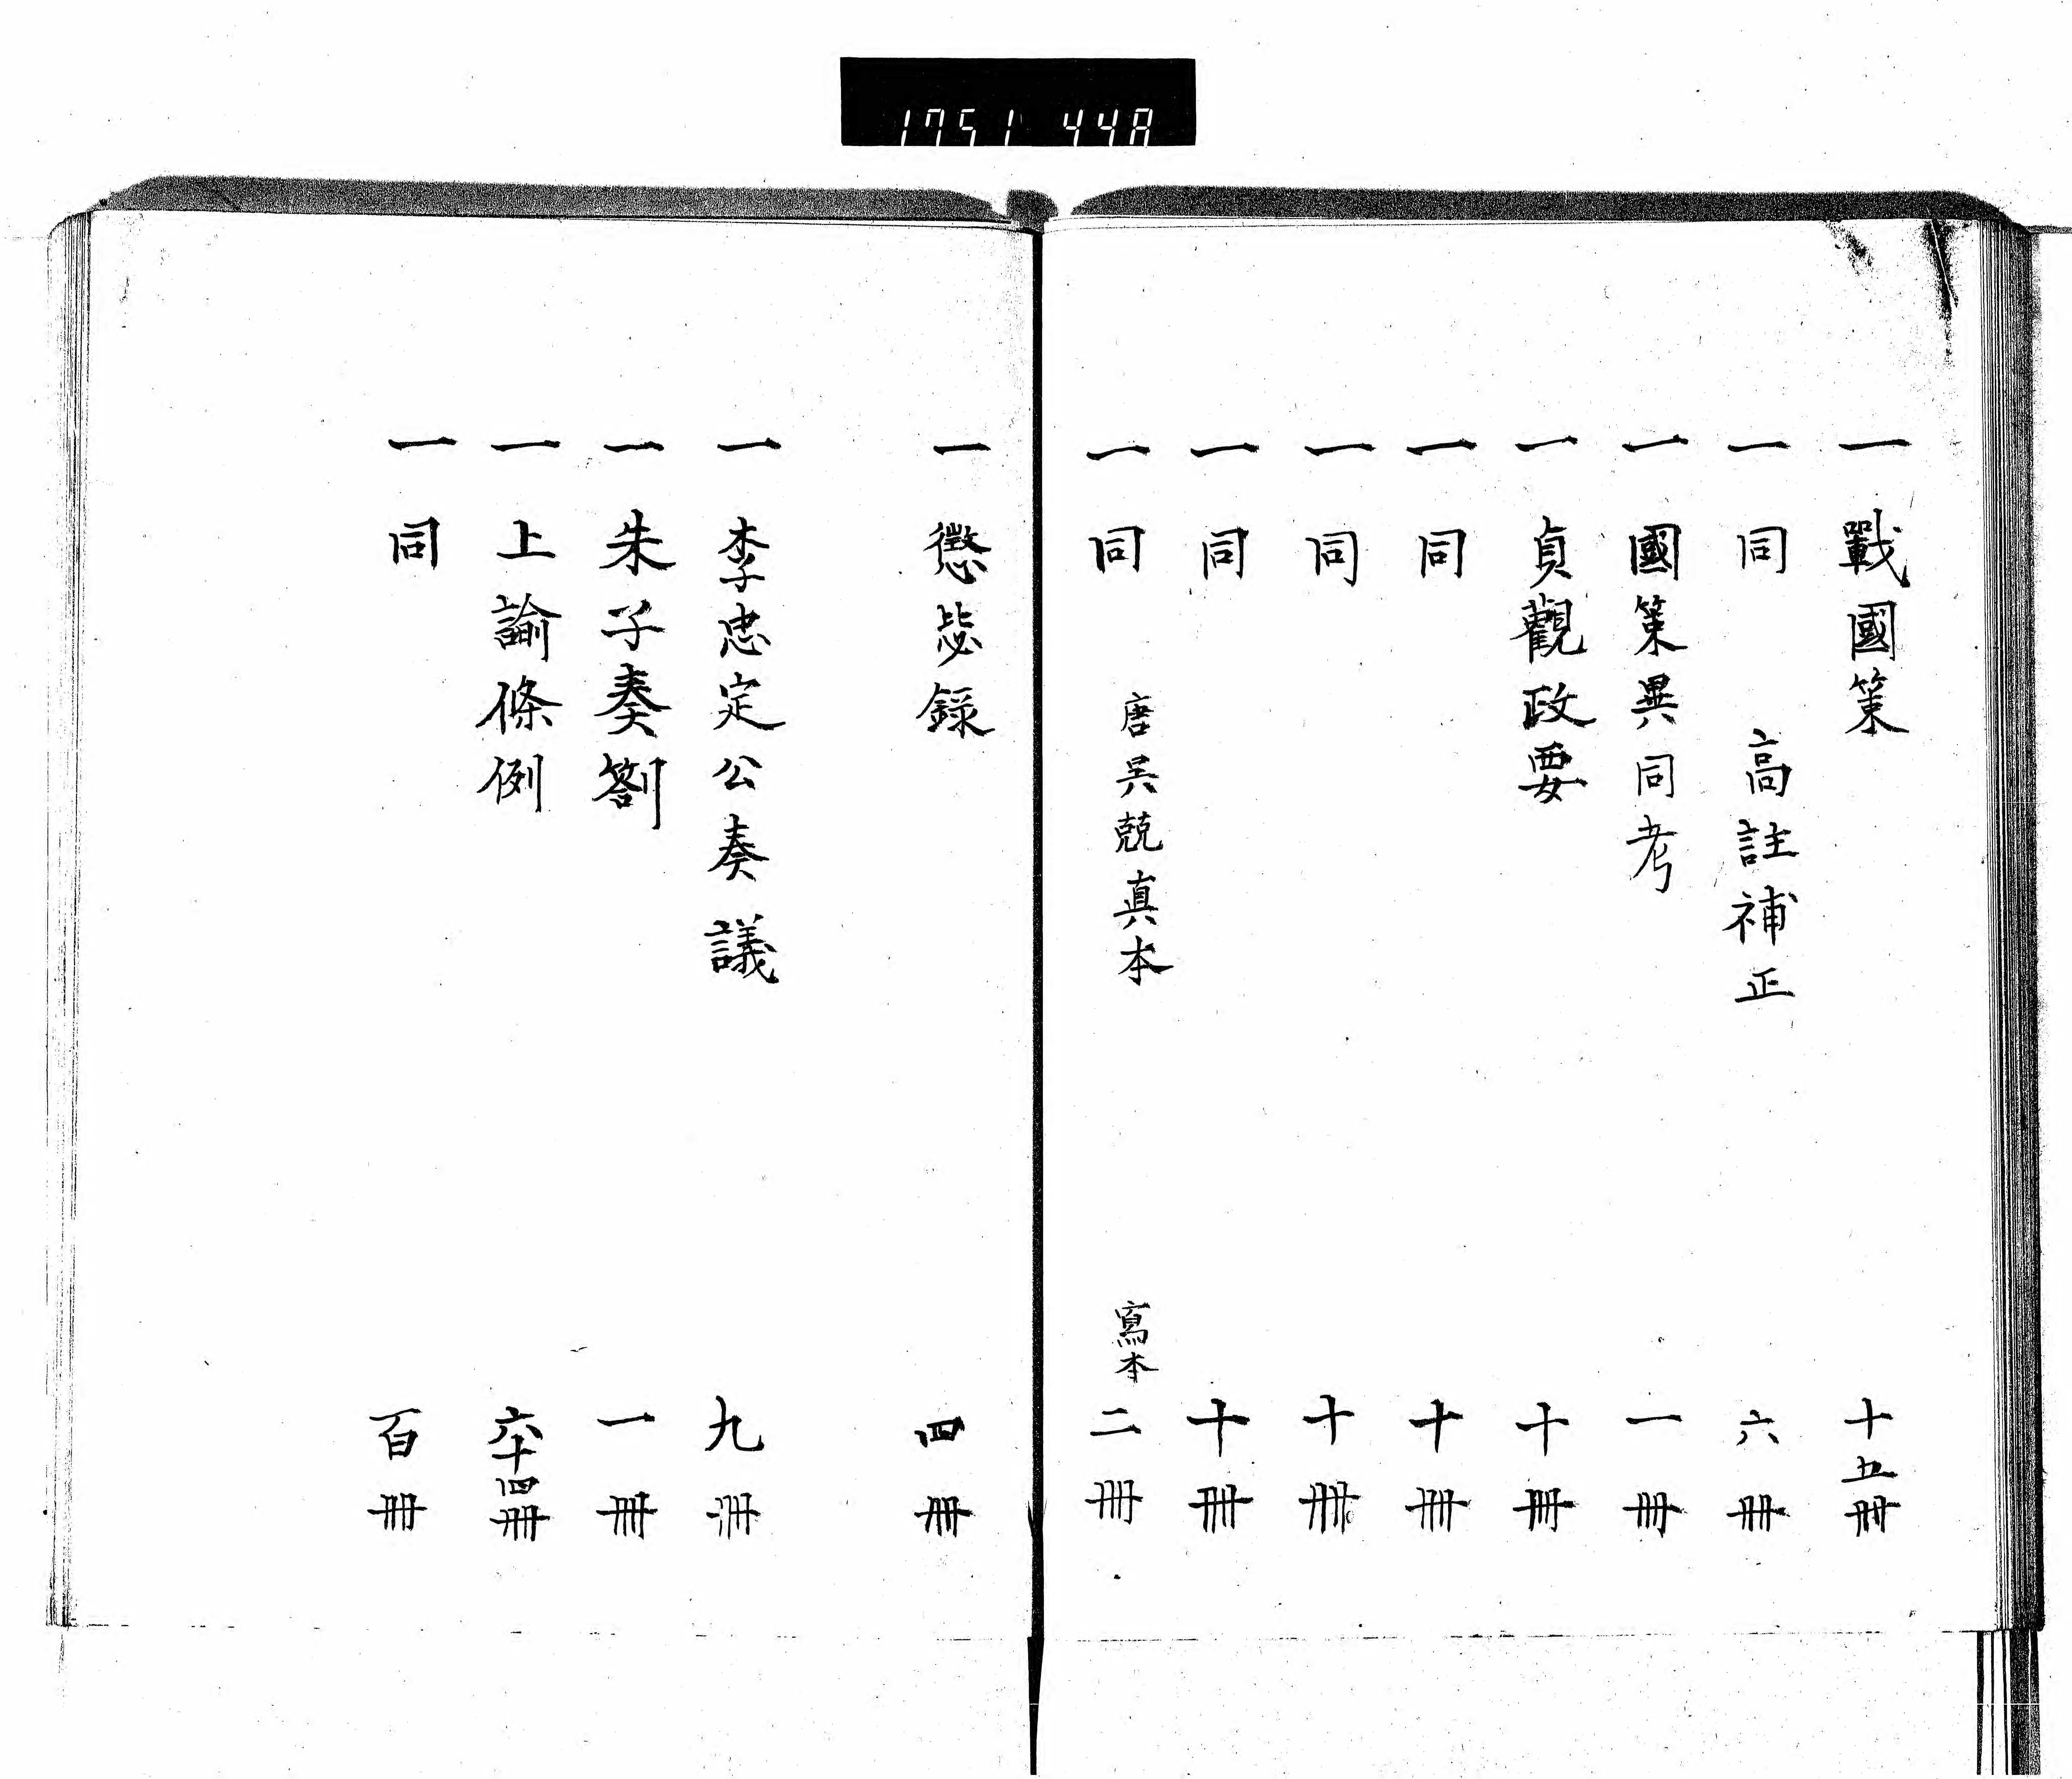 1751 448
一 戰國策 十五冊
一 同 高註補正 六冊
一 國策異同考 一冊
一 貞觀政要 十冊
一 同 十冊
一 同 十冊
一 同 十冊
一 同 唐吳兢真本 寫本 二冊
一 懲毖錄 四冊
一 李忠定公奏議 九冊
一 朱子奏劄 一冊
一 上諭條例 六十四冊
一 同 百冊